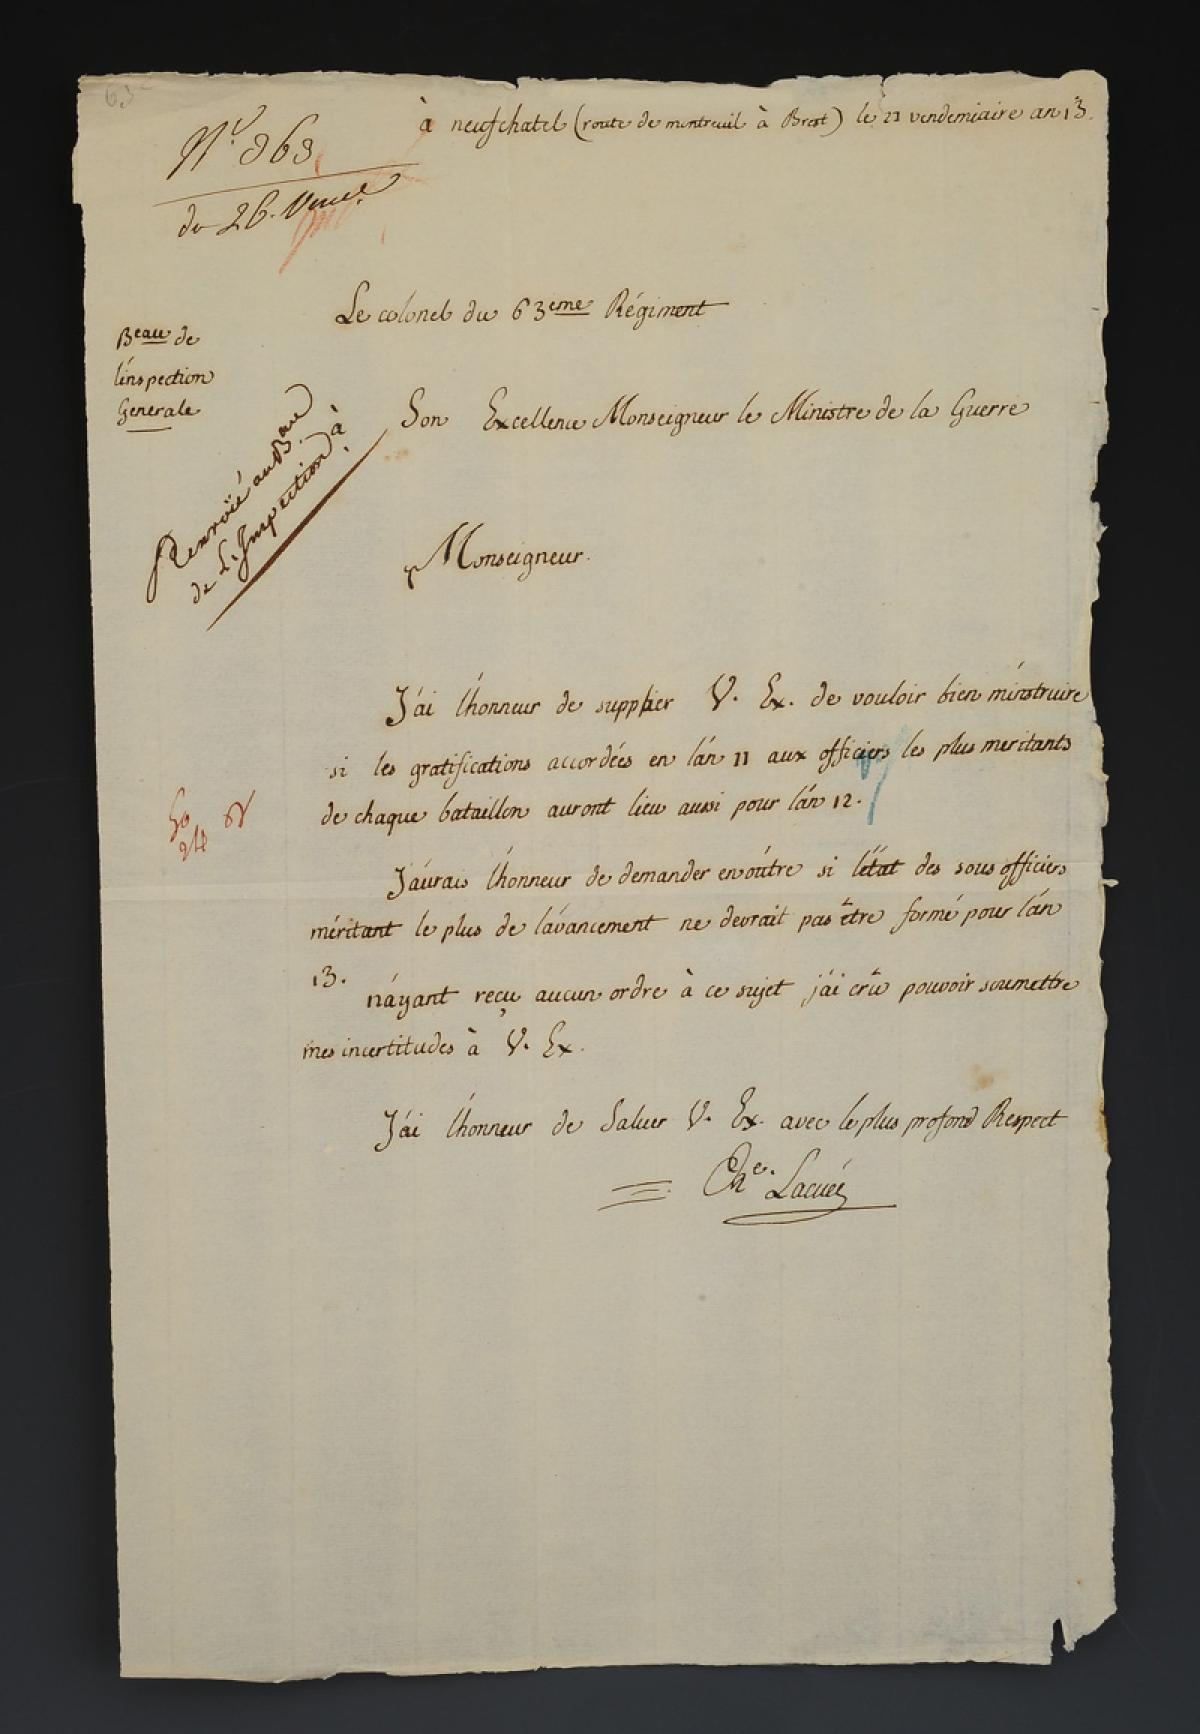 63e
à neufchatel (route de montreuil à Brest) le 21 vendemiaire an 13.
No. 363
du 26. Vend.e
Le colonel du 63eme Régiment
Beau de
l'inspection
Generale
Son Excellence Monseigneur le Ministre de la Guerre
Renvoié au B.au
de L'Inspection à
Monseigneur.
J'ai l'honneur de supplier V. Ex. de vouloir bien m'instruire
si les gratifications accordées en l'an 11 aux officiers les plus meritants
de chaque bataillon auront lieu aussi pour l'an 12.
J'aurais l'honneur de demander en outre si l'état des sous officiers
méritant le plus de l'avancement ne devrait pas être formé pour l'an
13.
n'ayant reçu aucun ordre à ce sujet j'ai crû pouvoir soumettre
mes incertitudes à V. Ex.
J'ai l'honneur de Saluer V. Ex. avec le plus profond Respect
Ch.e Lacuée